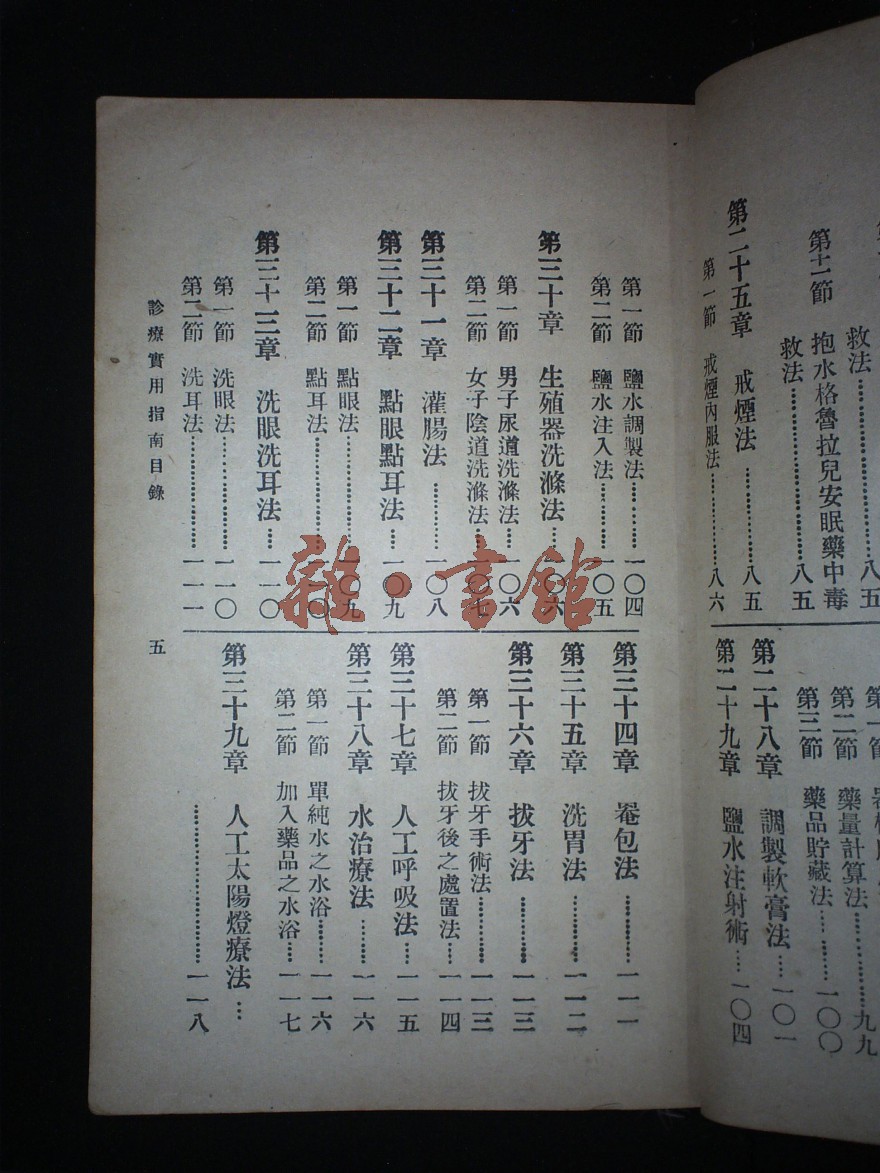 救法……八五
第十一節 抱水格魯拉兒安眠藥中毒
救法……八五
第二十五章 戒煙法……八五
第一節 戒煙內服法……八六
第二節 藥量計算法……九九
第三節 藥品貯藏法……一〇〇
第二十八章 調製軟膏法……一〇一
第二十九章 鹽水注射術……一〇四
第一節 鹽水調製法……一〇四
第二節 鹽水注入法……一〇五
第三十章 生殖器洗滌法……一〇六
第一節 男子尿道洗滌法……一〇六
第二節 女子陰道洗滌法……一〇七
第三十一章 灌腸法……一〇八
第三十二章 點眼點耳法……一〇九
第一節 點眼法……一〇九
第二節 點耳法……一一〇
第三十三章 洗眼洗耳法……一一〇
第一節 洗眼法……一一〇
第二節 洗耳法……一一一
第三十四章 罨包法……一一一
第三十五章 洗胃法……一一二
第三十六章 拔牙法……一一三
第一節 拔牙手術法……一一三
第二節 拔牙後之處置法……一一四
第三十七章 人工呼吸法……一一五
第三十八章 水治療法……一一六
第一節 單純水之水浴……一一六
第二節 加入藥品之水浴……一一七
第三十九章 人工太陽燈療法…
……一一八
診療實用指南目錄
五
雜·書館